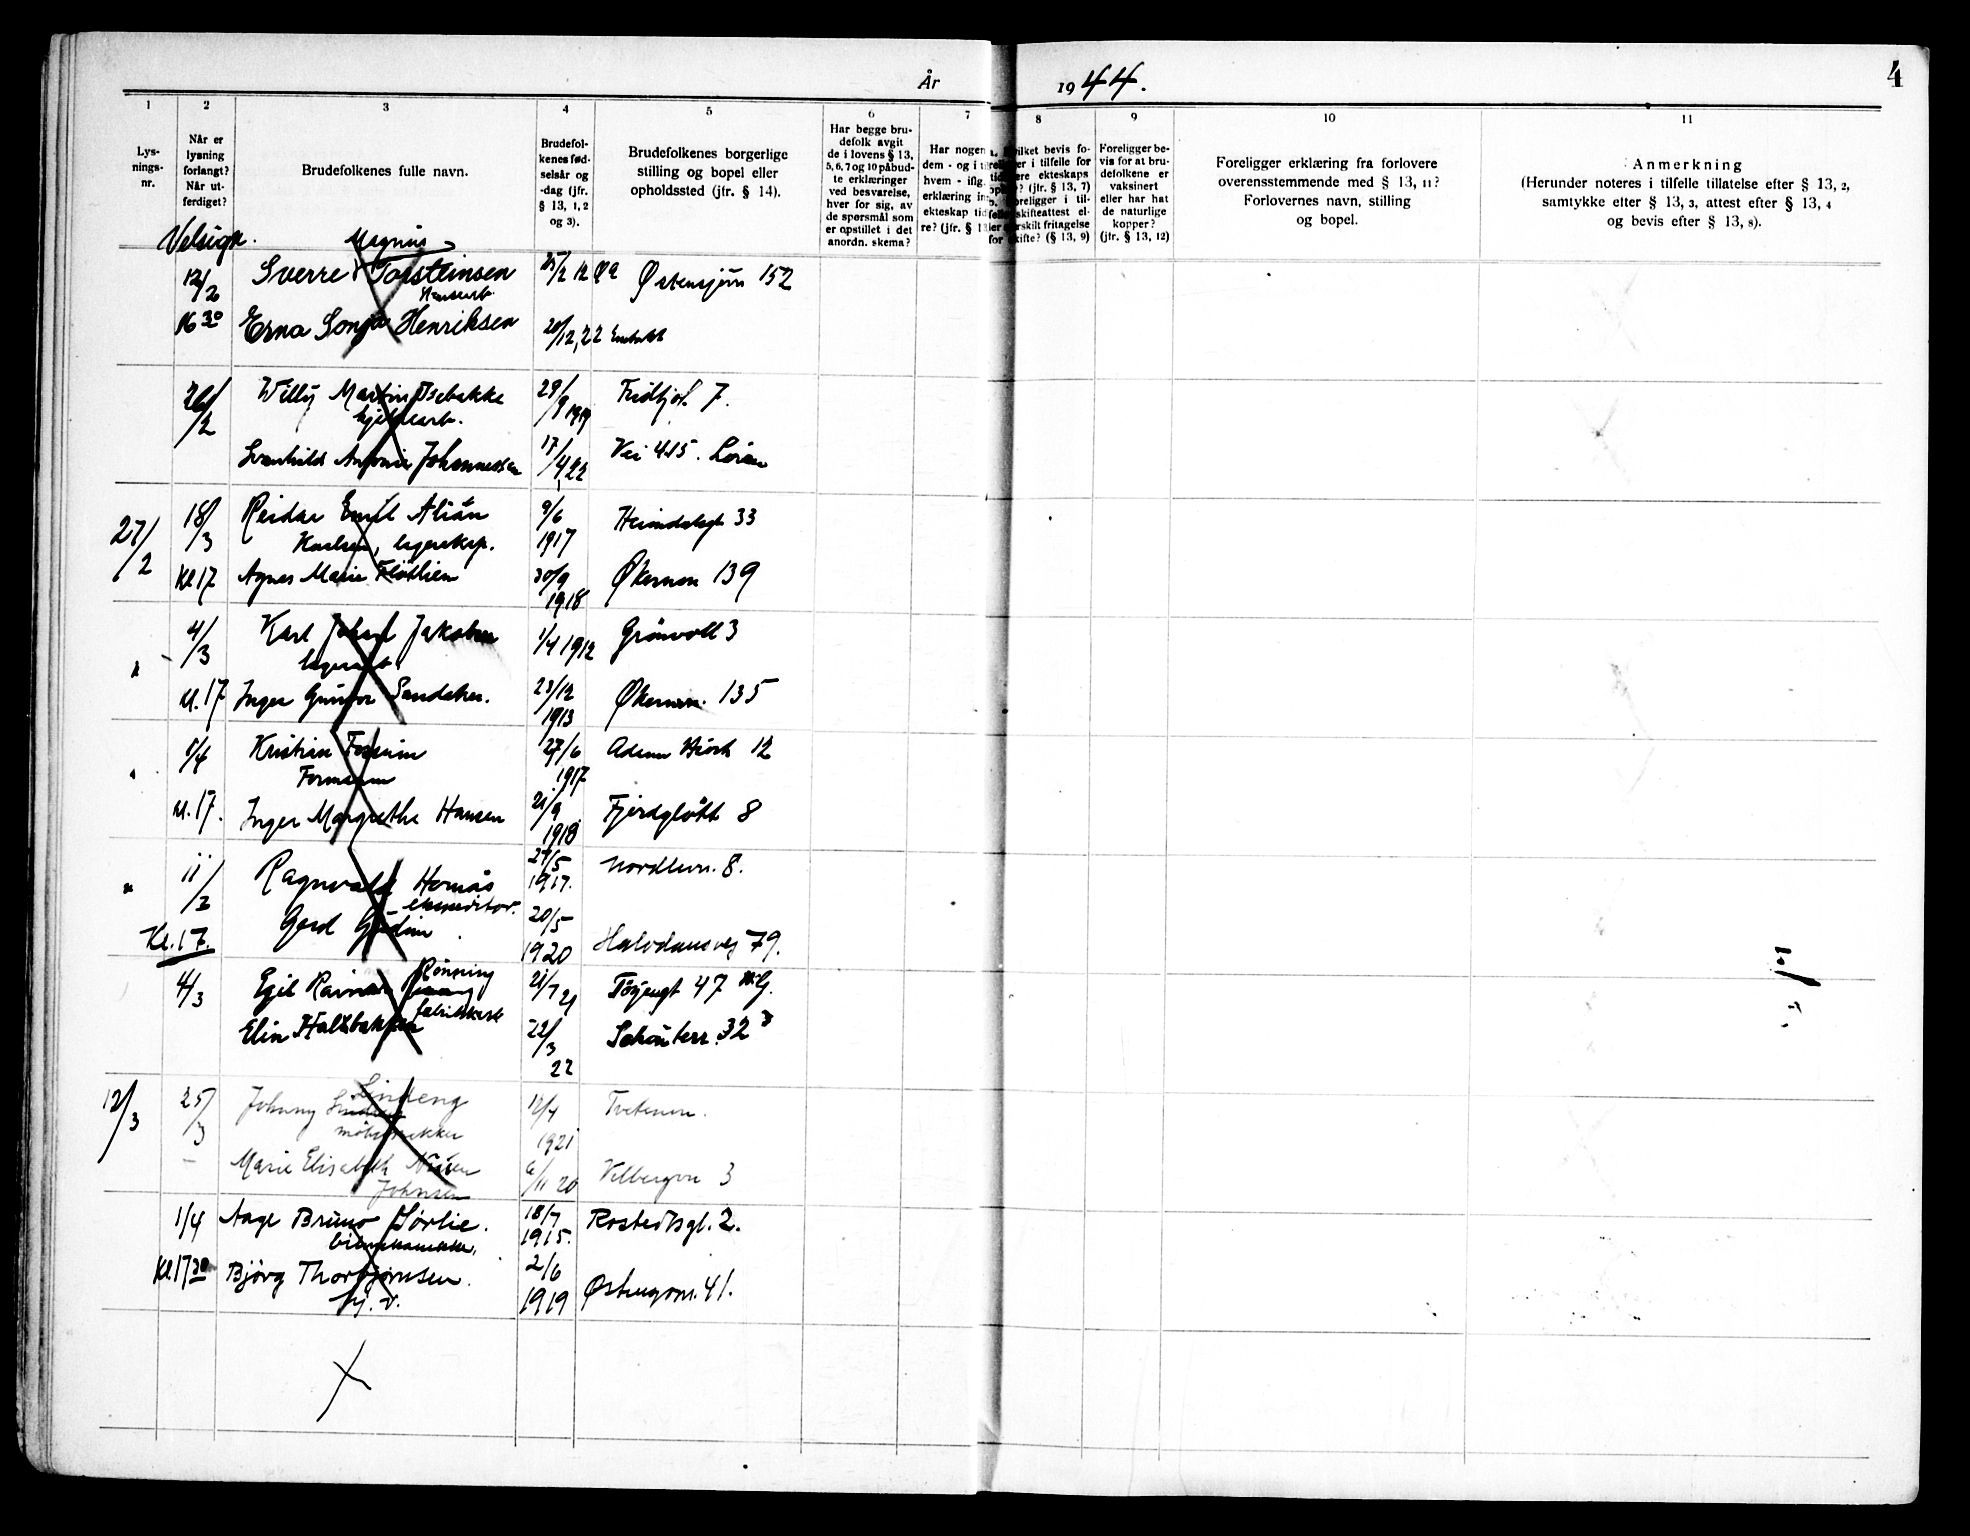 År 1944.
4
1 2 3 4 5 6 7 8 9 10 11
Lys-
nings-
nr.
Når er
lysning
forlangt?
Når ut-
ferdiget?
Brudefolkenes fulle navn.
Brudefol-
kenes fød-
selsår og
-dag (jfr.
§ 13, 1, 2
og 3).
Brudefolkenes borgerlige
stilling og bopel eller
opholdssted (jfr. § 14).
Har begge bru-
defolk avgit
de i lovens § 13,
5, 6, 7 og 10 påbud-
te erklæringer
ved besvarelse,
hver for sig, av
de spørsmål som
er opstillet i det
anordn. skema?
Har nogen
dem - og i
hvem - iflg.
erklæring
ekteskap tid
re? (jfr. § 13
hvilket bevis fo-
i tilfelle for
ekteskaps
? (jfr. § 13, 7)
foreligger i til-
skifteattest el-
særskilt fritagelse
for skifte? (§ 13, 9)
Foreligger be-
vis for at bru-
defolkene er
vaksinert
eller har hat
de naturlige
kopper?
(jfr. § 13, 12)
Foreligger erklæring fra forlovere
overensstemmende med § 13, 11?
Forlovernes navn, stilling
og bopel.
Anmerkning
(Herunder noteres i tilfelle tillatelse efter § 13, 2,
samtykke efter § 13, 3, attest efter § 13, 4
og bevis efter § 13, 8).
Velsign.
Magnus
12/2 Sverre Torsteinsen Østensjøvn 152
16 30 Erna Sonja Henriksen 20/12, 22
26/2 Willy Martin Isebakke 29/9 1919 Fridtjof. 7.
Svanhild Antonie Johannessen 17/4, 22 Vei 415. Løren
27/2 18/3 Reidar Emil Alián 9/6 1917 Heimdalsgt 33
Karlsen, lagereksp.
Kl 17 Agnes Marie Fløtlien 30/9 1918 Økernvn 139
" 4/3 Karl Johan Jakobsen 1/4 1912 Grönvoll 3
lagerarb.
kl. 17 Inger Gunvor Sandaker. 23/12 1913 Økernvn. 135
" 1/4 Kristian Fossum 27/6 1917 Adam Hiort 12
Formann
kl. 17. Inger Margrethe Hansen 21/9 1918 Fjordgløtt 8
" 11/3 Ragnvald Homås 27/5 1917. Nordlivn. 8.
ekspeditør.
Kl. 17. Gerd Gudim 20/5 1920 Halvdansvej 79.
4/3 Egil Rønning 21/7 21 Tøyengt 47
fabrikkarb
Elin Hallsbakken 22/3 22 Schouterr. 32
12/3 25/3 Johnny Lindeng 12/4 1921 Tvetenvn.
møbelsnekker
Marie Elisabeth Nilsen 6/11 20 Vilbergvn 3
Johnsen
1/4 Aage Bruno Sørlie. 18/7 1915. Rostedsgt. 2.
bilmekaniker,
Kl 17 30 Bjørg Thorbjørnsen. 2/6 1919 Østengvn. 41.
hj. v.